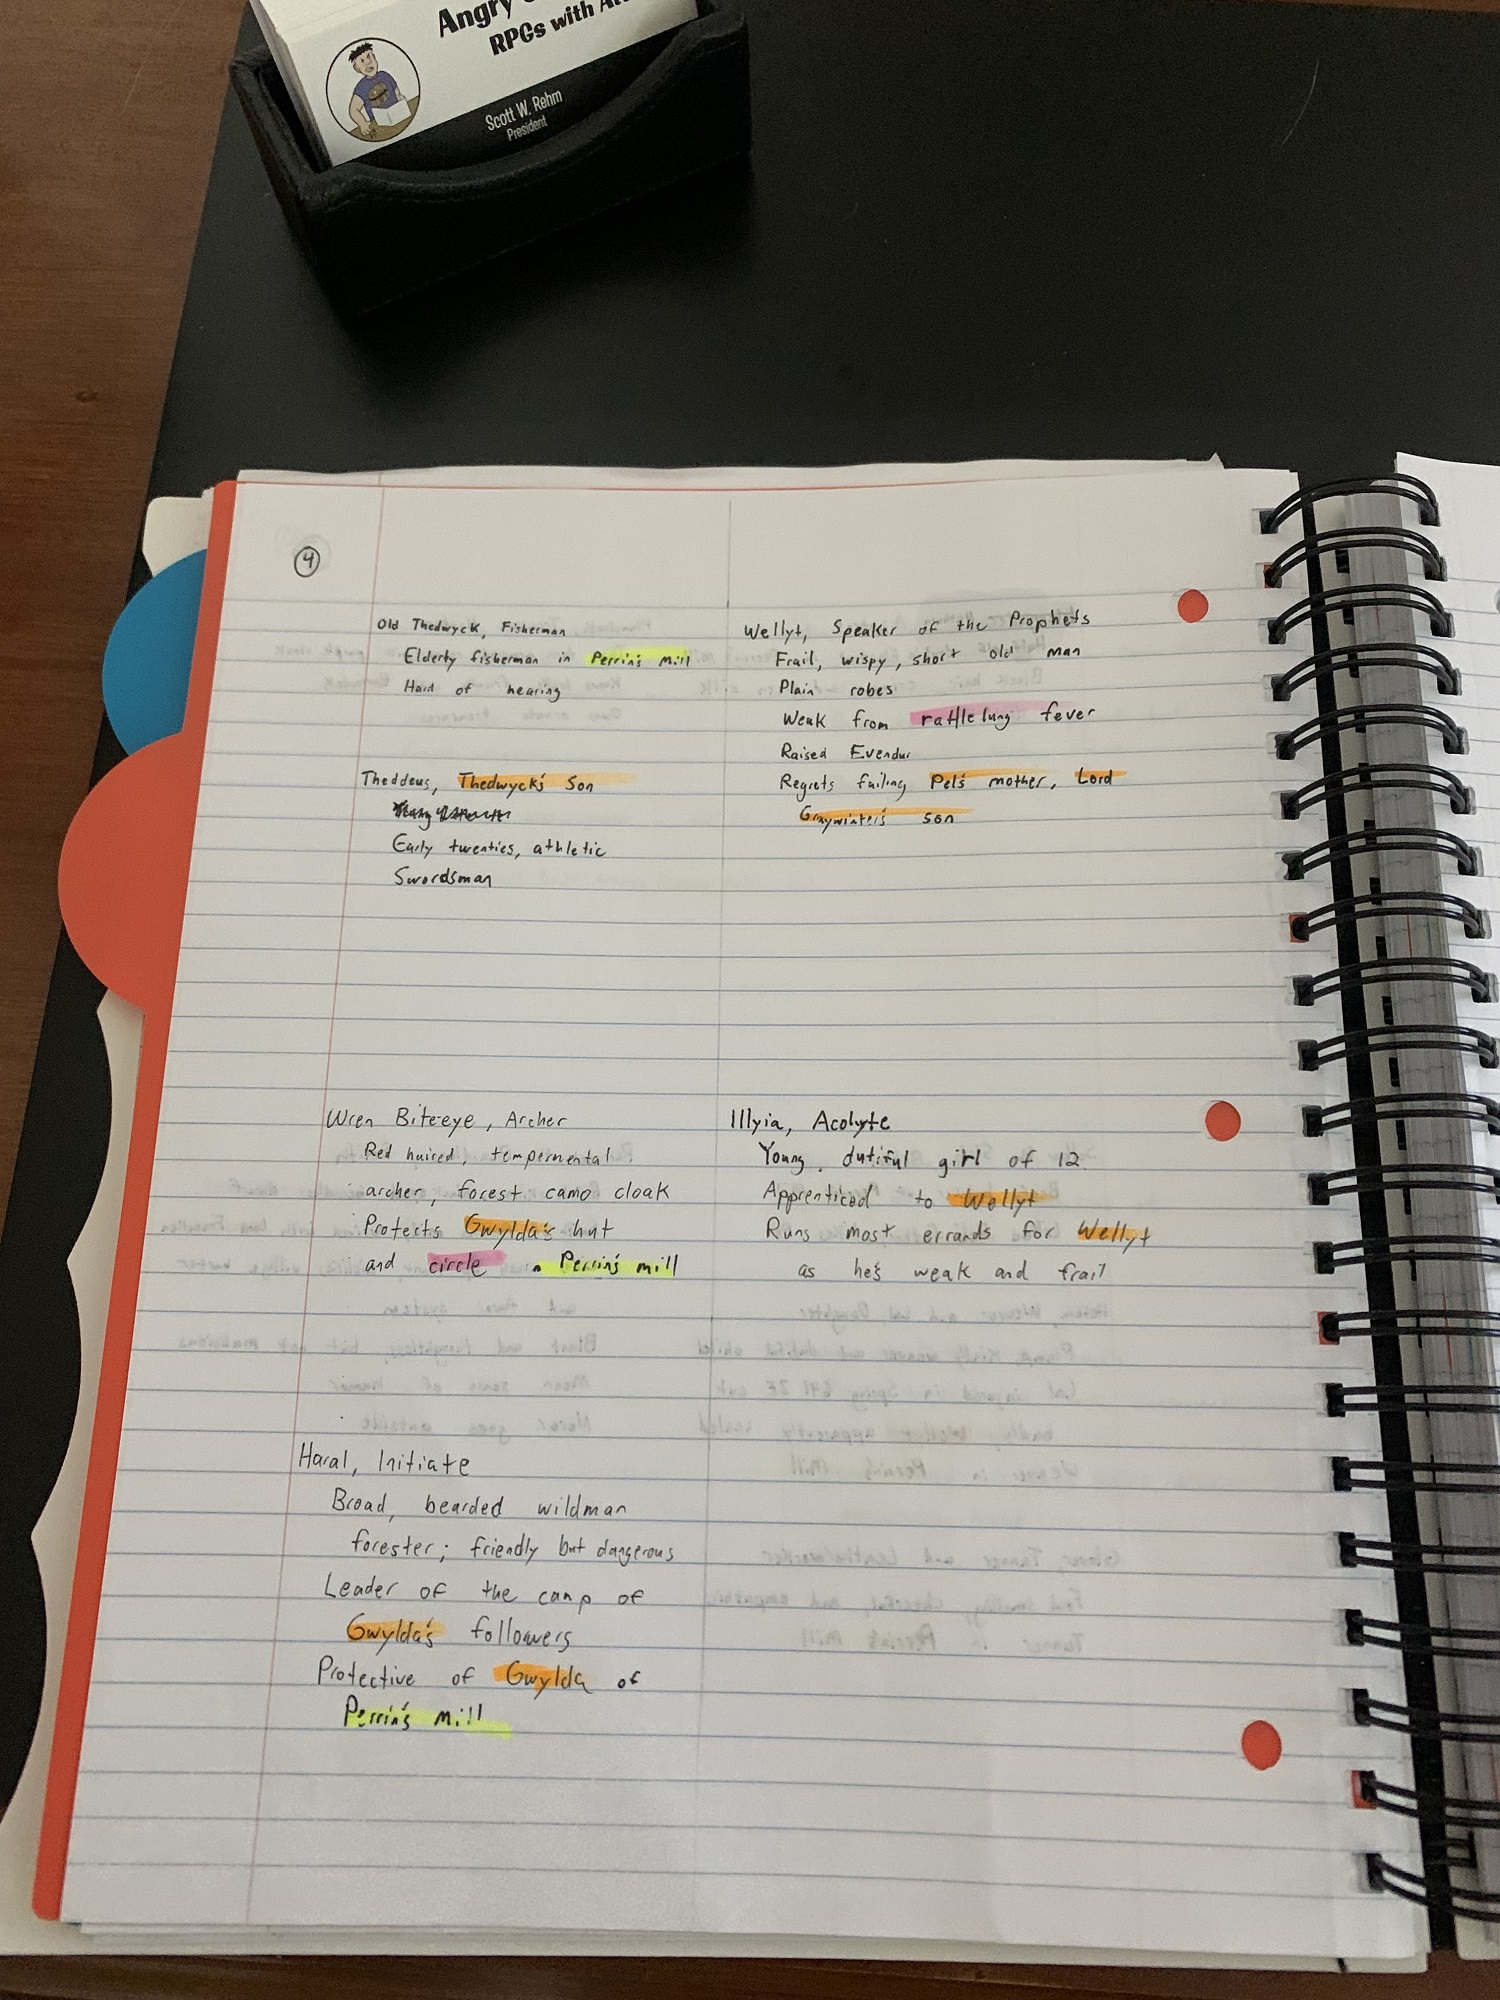 Angry
RPGs with
Scott W. Rehm
President
4
Old Thedwyck, Fisherman
Elderly fisherman in Perrin's Mill
Hard of hearing
Theddeus, Thedwyck's Son
Early twenties, athletic
Swordsman
Wren Bite-eye, Archer
Red haired, tempermental
archer, forest camo cloak
Protects Gwylda's hut
and circle in Perrin's mill
Haral, Initiate
Broad, bearded wildman
forester; friendly but dangerous
Leader of the camp of
Gwylda's followers
Protective of Gwylda of
Perrin's mill
Wellyt, Speaker of the Prophets
Frail, wispy, short old man
Plain robes
Weak from rattlelung fever
Raised Evendur
Regrets failing Pel's mother, Lord
Graywinter's son
Illyia, Acolyte
Young, dutiful girl of 12
Apprenticed to Wellyt
Runs most errands for Wellyt
as he's weak and frail